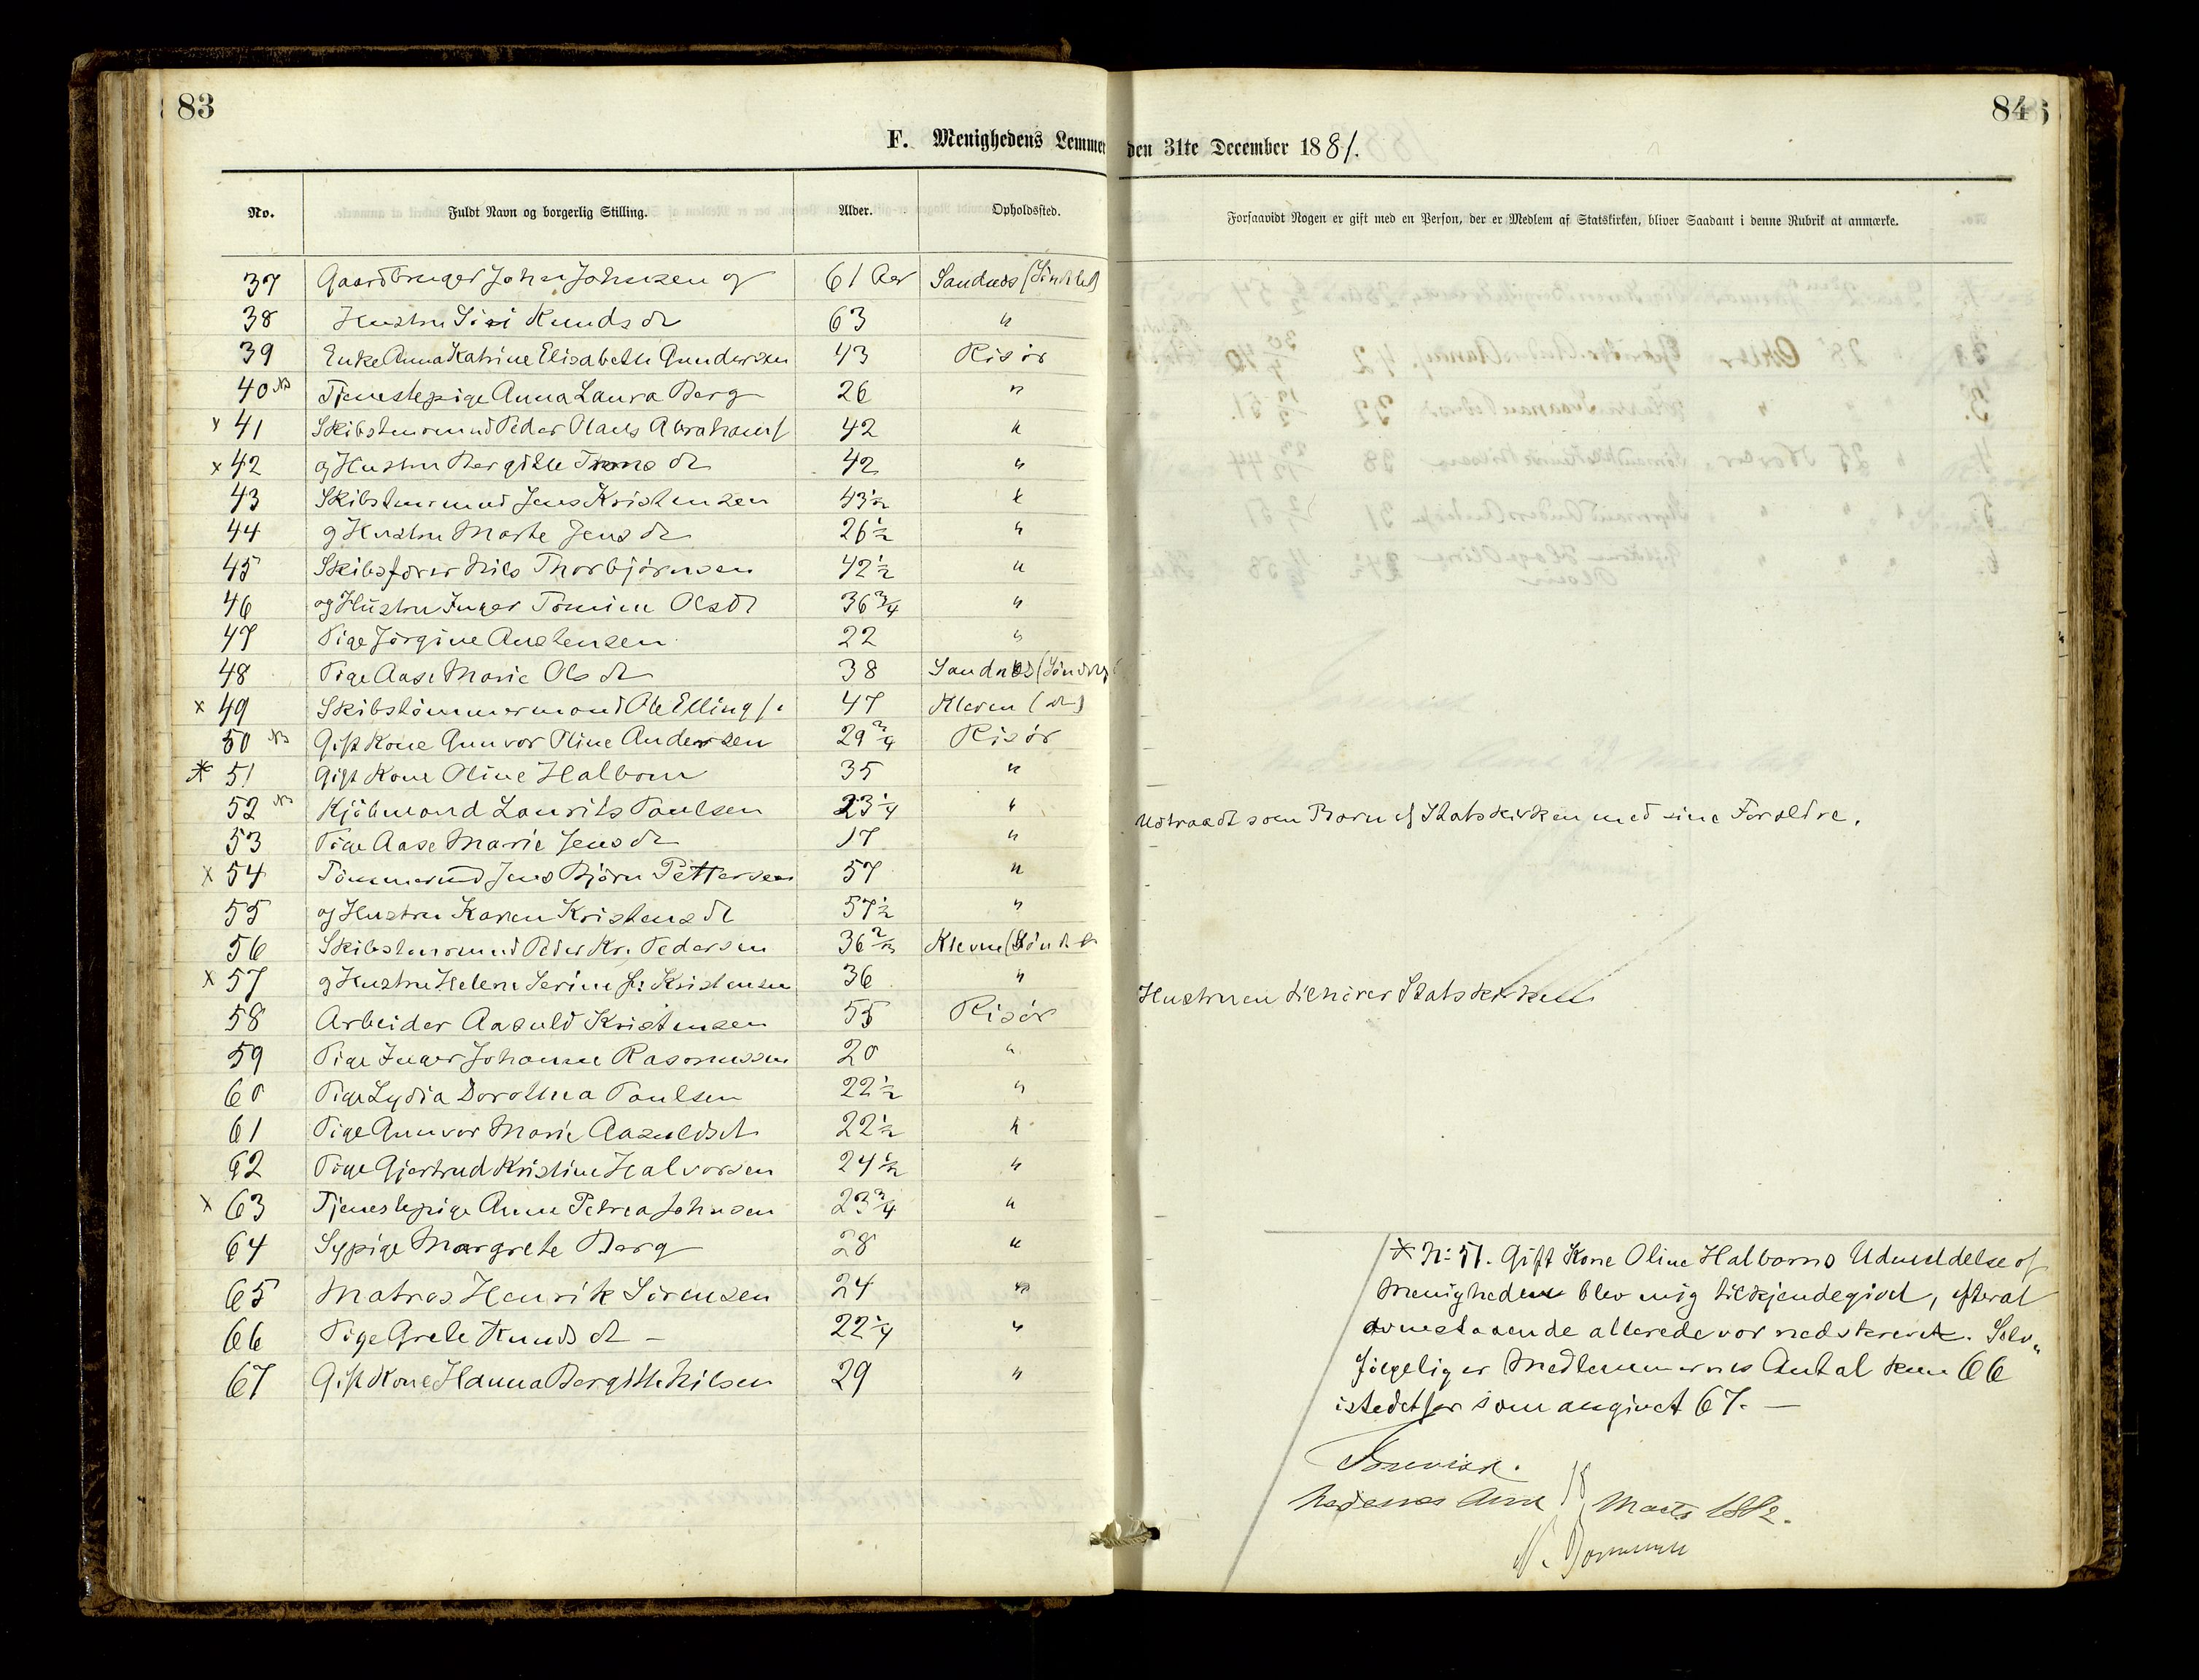 83
84
F. Menighedens Lemmer den 31te December 1881.
No. Fuldt Navn og borgerlig Stilling. Alder. Opholdssted. Forsaavidt Nogen er gift med en Person, der er Medlem af Statskirken, bliver Saadant i denne Rubrik at anmærke.
37 Gaardbruger John Johnsen og 61 Aar Sandnæs (Söndeled)
38 Hustru Siri Knudsdt 63 "
39 Enke Anna Katrine Elisabeth Gundersen 43 Risör
40 Tjenestepige Anna Laura Berg 26 "
x 41 Peder Olaus Abrahams 42 "
x 42 og Hustru Bergitte dt 42 "
43 Jens Kristensen 43½ "
44 og Hustru Marte Jensdt 26½ "
45 Skibsförer Nils Thorbjörnsen 42½ "
46 og Hustru Inger Tomine Olsdt 36¾ "
47 Pige Jörgine Austensen 22 "
48 Pige Aase Marie Olsdt 38 Sandnæs
x 49 Skibstömmermand Ole Ellings. 47 Kleven (dt)
50 Gift Kone Gunvor Oline Andersen 29¾ Risör
* 51 Gift Kone Oline Halborn 35 "
52 Kjöbmand Laurits Paulsen 23¼ " Udtraadt som Barn af Statskirken med sine Foraldre.
53 Pige Aase Marie Jensdt 17 "
x 54 Tömmermd Jens Björn Pettersen 57 "
55 og Hustru Karen Kristensdt 57½ "
56 Peder Kr. Pedersen 36 Kleven
x 57 og Hustru Helene Serine Kristensen 36 " Hustruen tilhörer Statskirken
58 Arbeider Aasuld Kristensen 55 Risör
59 Pige Inger Johanne Rasmussen 20 "
60 Pige Lydia Dorothea Paulsen 22½ "
61 Pige Gunvor Marie Aasuldsdt 22½ "
62 Pige Gjertrud Kristine Halvorsen 24½ "
x 63 Tjenestepige Anne Petrea Johnsen 23¾ "
64 Sypige Margrete Berg 28 "
65 Matros Henrik Sörensen 24 "
66 Pige Grete Knudsdt - 22¼ "
67 Gift Kone Hanna Bergitte Nilsen 29 "
* No: 51. Gift Kone Oline Halborns Udmeldelse af
Menigheden blev mig tilkjendegivet, efterat
ovnestaaende allerede var nedskrevet. Selv„
fölgelig er Medlemmernes Antal kun 66
istedetfor som angivet 67. —
Nedenes Amt 18 Marts 1882.